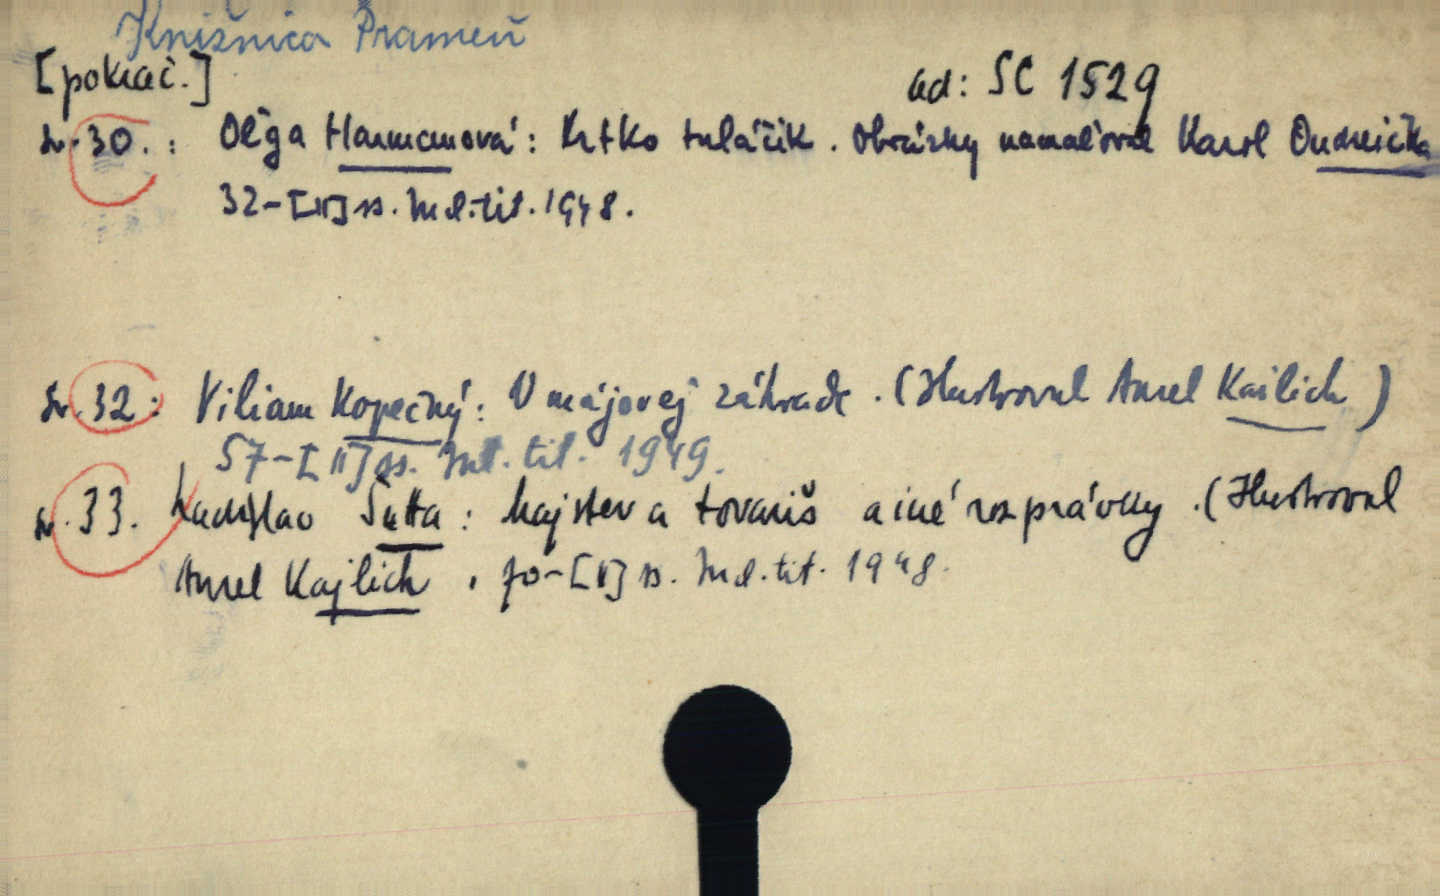 Knižnica Prameň
[pokrač.]
ad: SC 1529
Sv. 30. : Oľga Harmanová: Krtko tuláčik. Obrázky namaľoval Karol Ondreička
32-[II] ss. Ind. tit. 1948.
Sv. 32: Viliam Kopečný: V májovej záhrade. (Ilustroval Aurel Kajlich)
57-[II] ss. Ind. tit. 1949.
Sv. 33. Ladislav Šutta: Majster a tovariš a iné rozprávky. (Ilustroval
Aurel Kajlich. 70-[II] ss. Ind. tit. 1948.